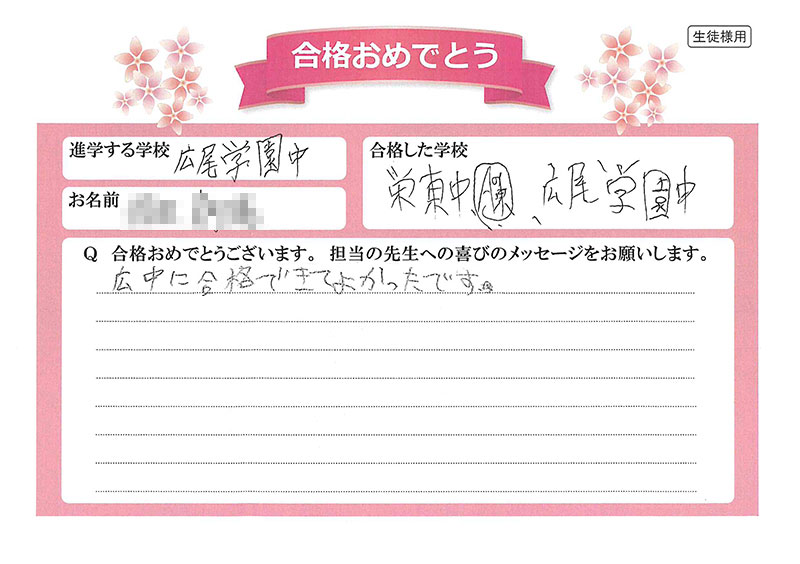 合格おめでとう
生徒様用
進学する学校 広尾学園中
合格した学校
栄東中 広尾学園中
お名前
Q 合格おめでとうございます。担当の先生への喜びのメッセージをお願いします。
広中に合格できてよかったです。